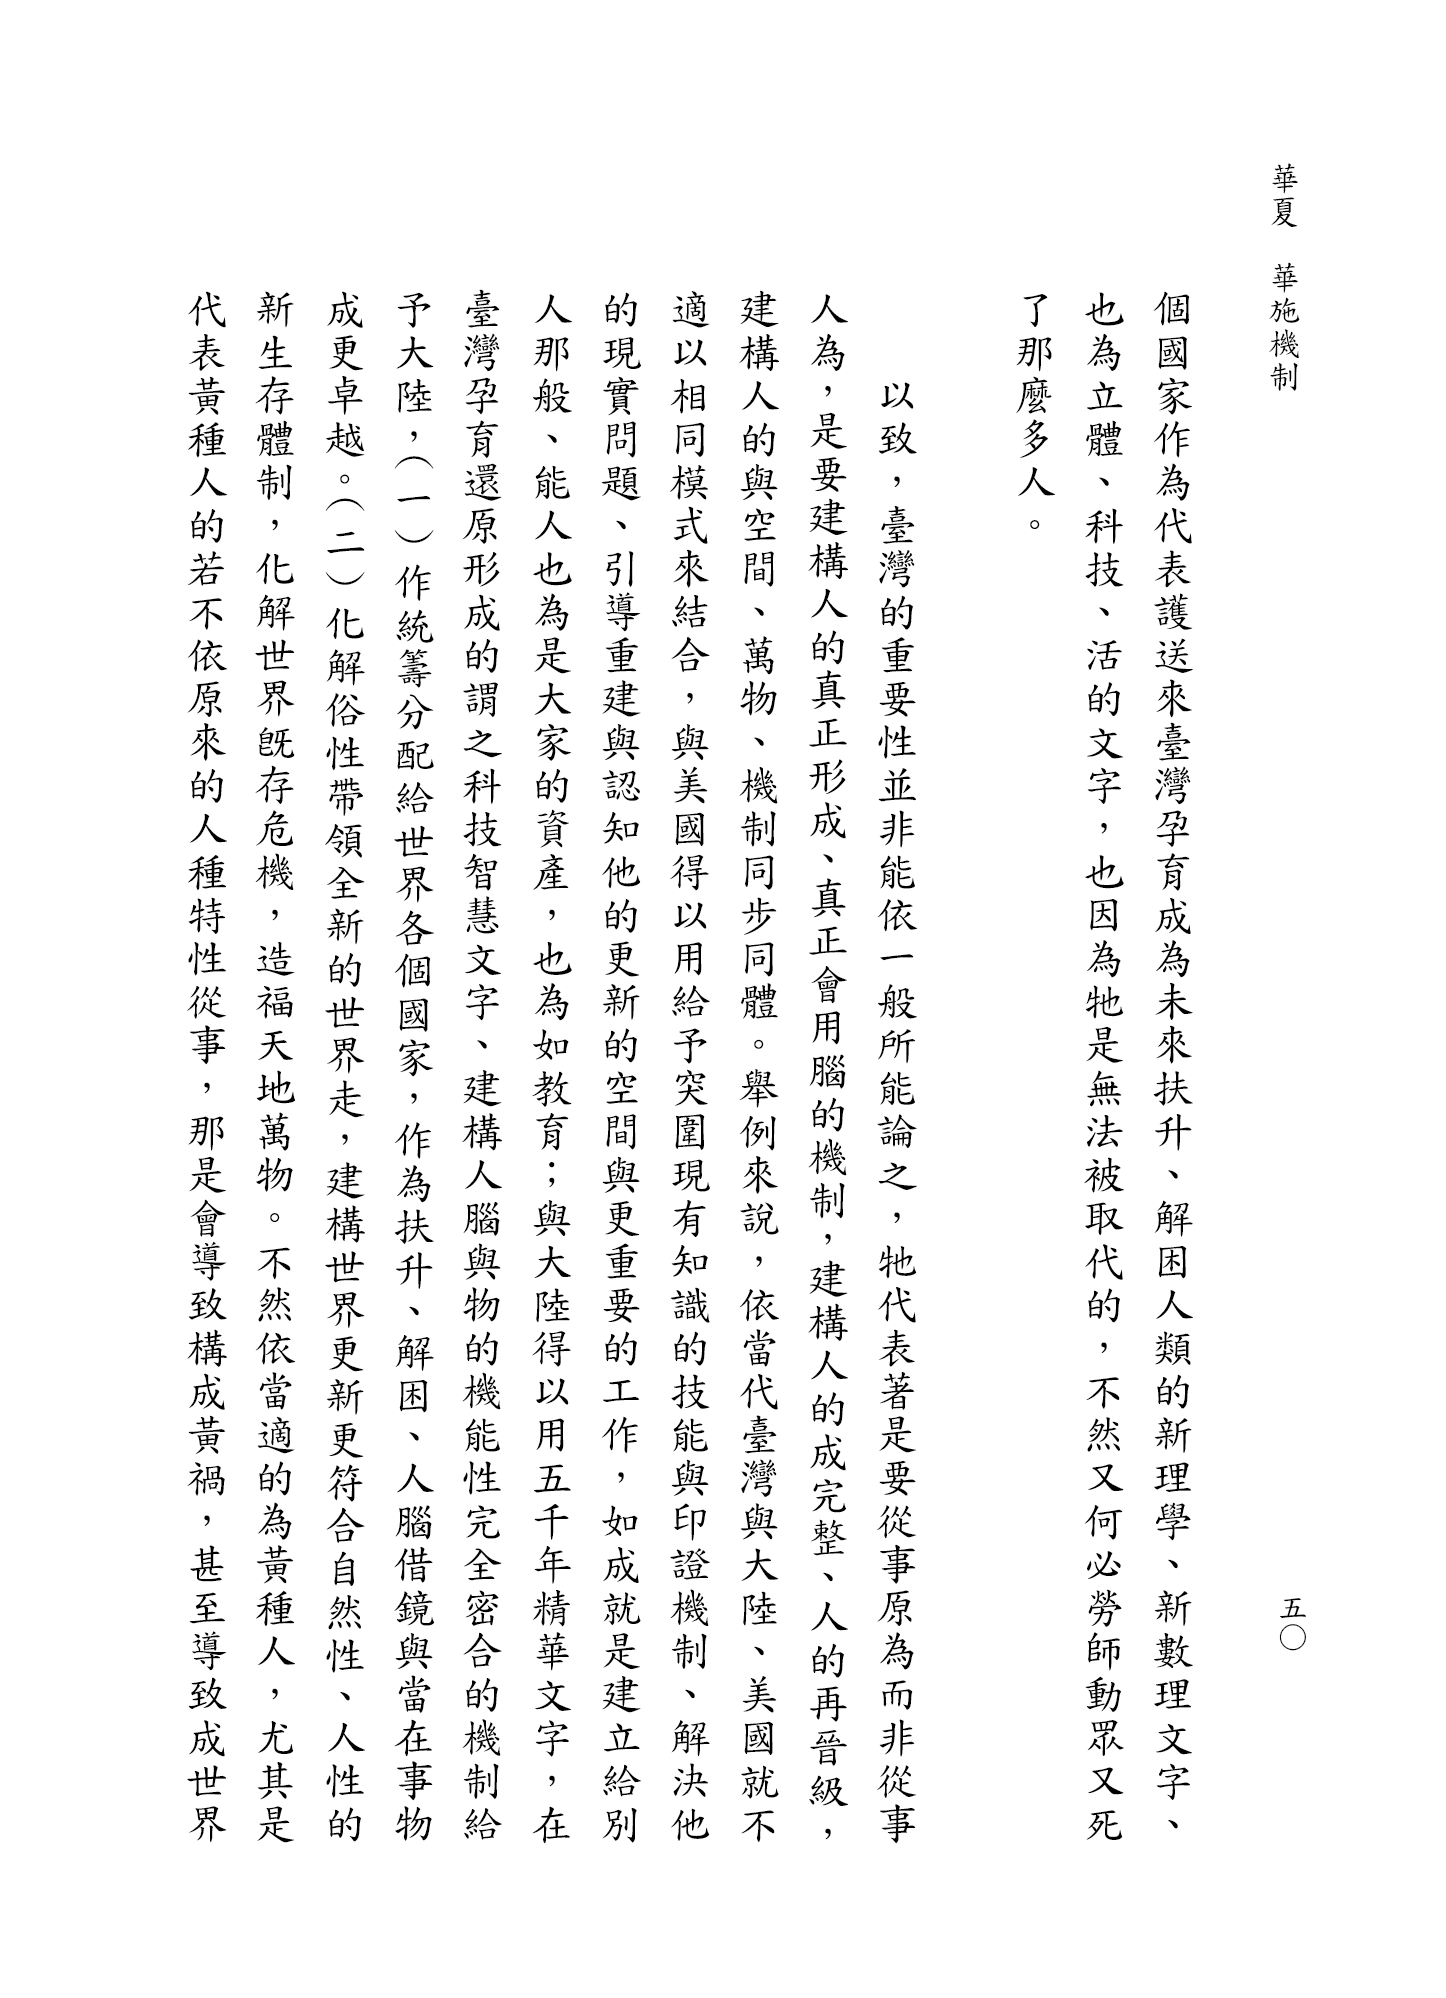 華夏　華施機制
五〇
個國家作為代表護送來臺灣孕育成為未來扶升、解困人類的新理學、新數理文字、
也為立體、科技、活的文字，也因為牠是無法被取代的，不然又何必勞師動眾又死
了那麼多人。
以致，臺灣的重要性並非能依一般所能論之，牠代表著是要從事原為而非從事
人為，是要建構人的真正形成、真正會用腦的機制，建構人的成完整、人的再晉級，
建構人的與空間、萬物、機制同步同體。舉例來說，依當代臺灣與大陸、美國就不
適以相同模式來結合，與美國得以用給予突圍現有知識的技能與印證機制、解決他
的現實問題、引導重建與認知他的更新的空間與更重要的工作，如成就是建立給別
人那般、能人也為是大家的資產，也為如教育；與大陸得以用五千年精華文字，在
臺灣孕育還原形成的謂之科技智慧文字、建構人腦與物的機能性完全密合的機制給
予大陸，（一）作統籌分配給世界各個國家，作為扶升、解困、人腦借鏡與當在事物
成更卓越。（二）化解俗性帶領全新的世界走，建構世界更新更符合自然性、人性的
新生存體制，化解世界既存危機，造福天地萬物。不然依當適的為黃種人，尤其是
代表黃種人的若不依原來的人種特性從事，那是會導致構成黃禍，甚至導致成世界